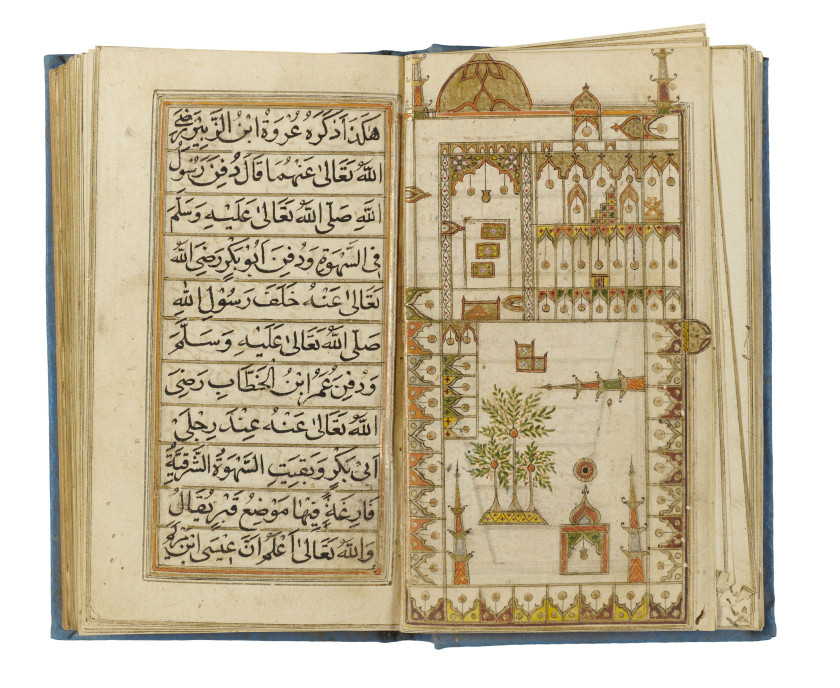 هٰكَذَا ذَكَرَهُ عُرْوَةُ ابْنُ الزُّبَيْرِ رَضِيَ
اللهُ تَعَالٰى عَنْهُمَا قَالَ دُفِنَ رَسُوْلُ
اللهِ صَلَّى اللهُ تَعَالٰى عَلَيْهِ وَسَلَّمَ
فِي السَّهْوَةِ وَدُفِنَ اَبُوْ بَكْرٍ رَضِيَ اللهُ
تَعَالٰى عَنْهُ خَلْفَ رَسُوْلِ اللهِ
صَلَّى اللهُ تَعَالٰى عَلَيْهِ وَسَلَّمَ
وَدُفِنَ عُمَرُ ابْنُ الْخَطَّابِ رَضِيَ
اللهُ تَعَالٰى عَنْهُ عِنْدَ رِجْلَيْ
اَبِيْ بَكْرٍ وَبَقِيَتِ السَّهْوَةُ الشَّرْقِيَّةُ
فَارِغَةً فِيْهَا مَوْضِعُ قَبْرٍ يُقَالُ
وَاللهُ تَعَالٰى اَعْلَمُ اَنَّ عِيْسَى ابْنَ مَرْيَمَ